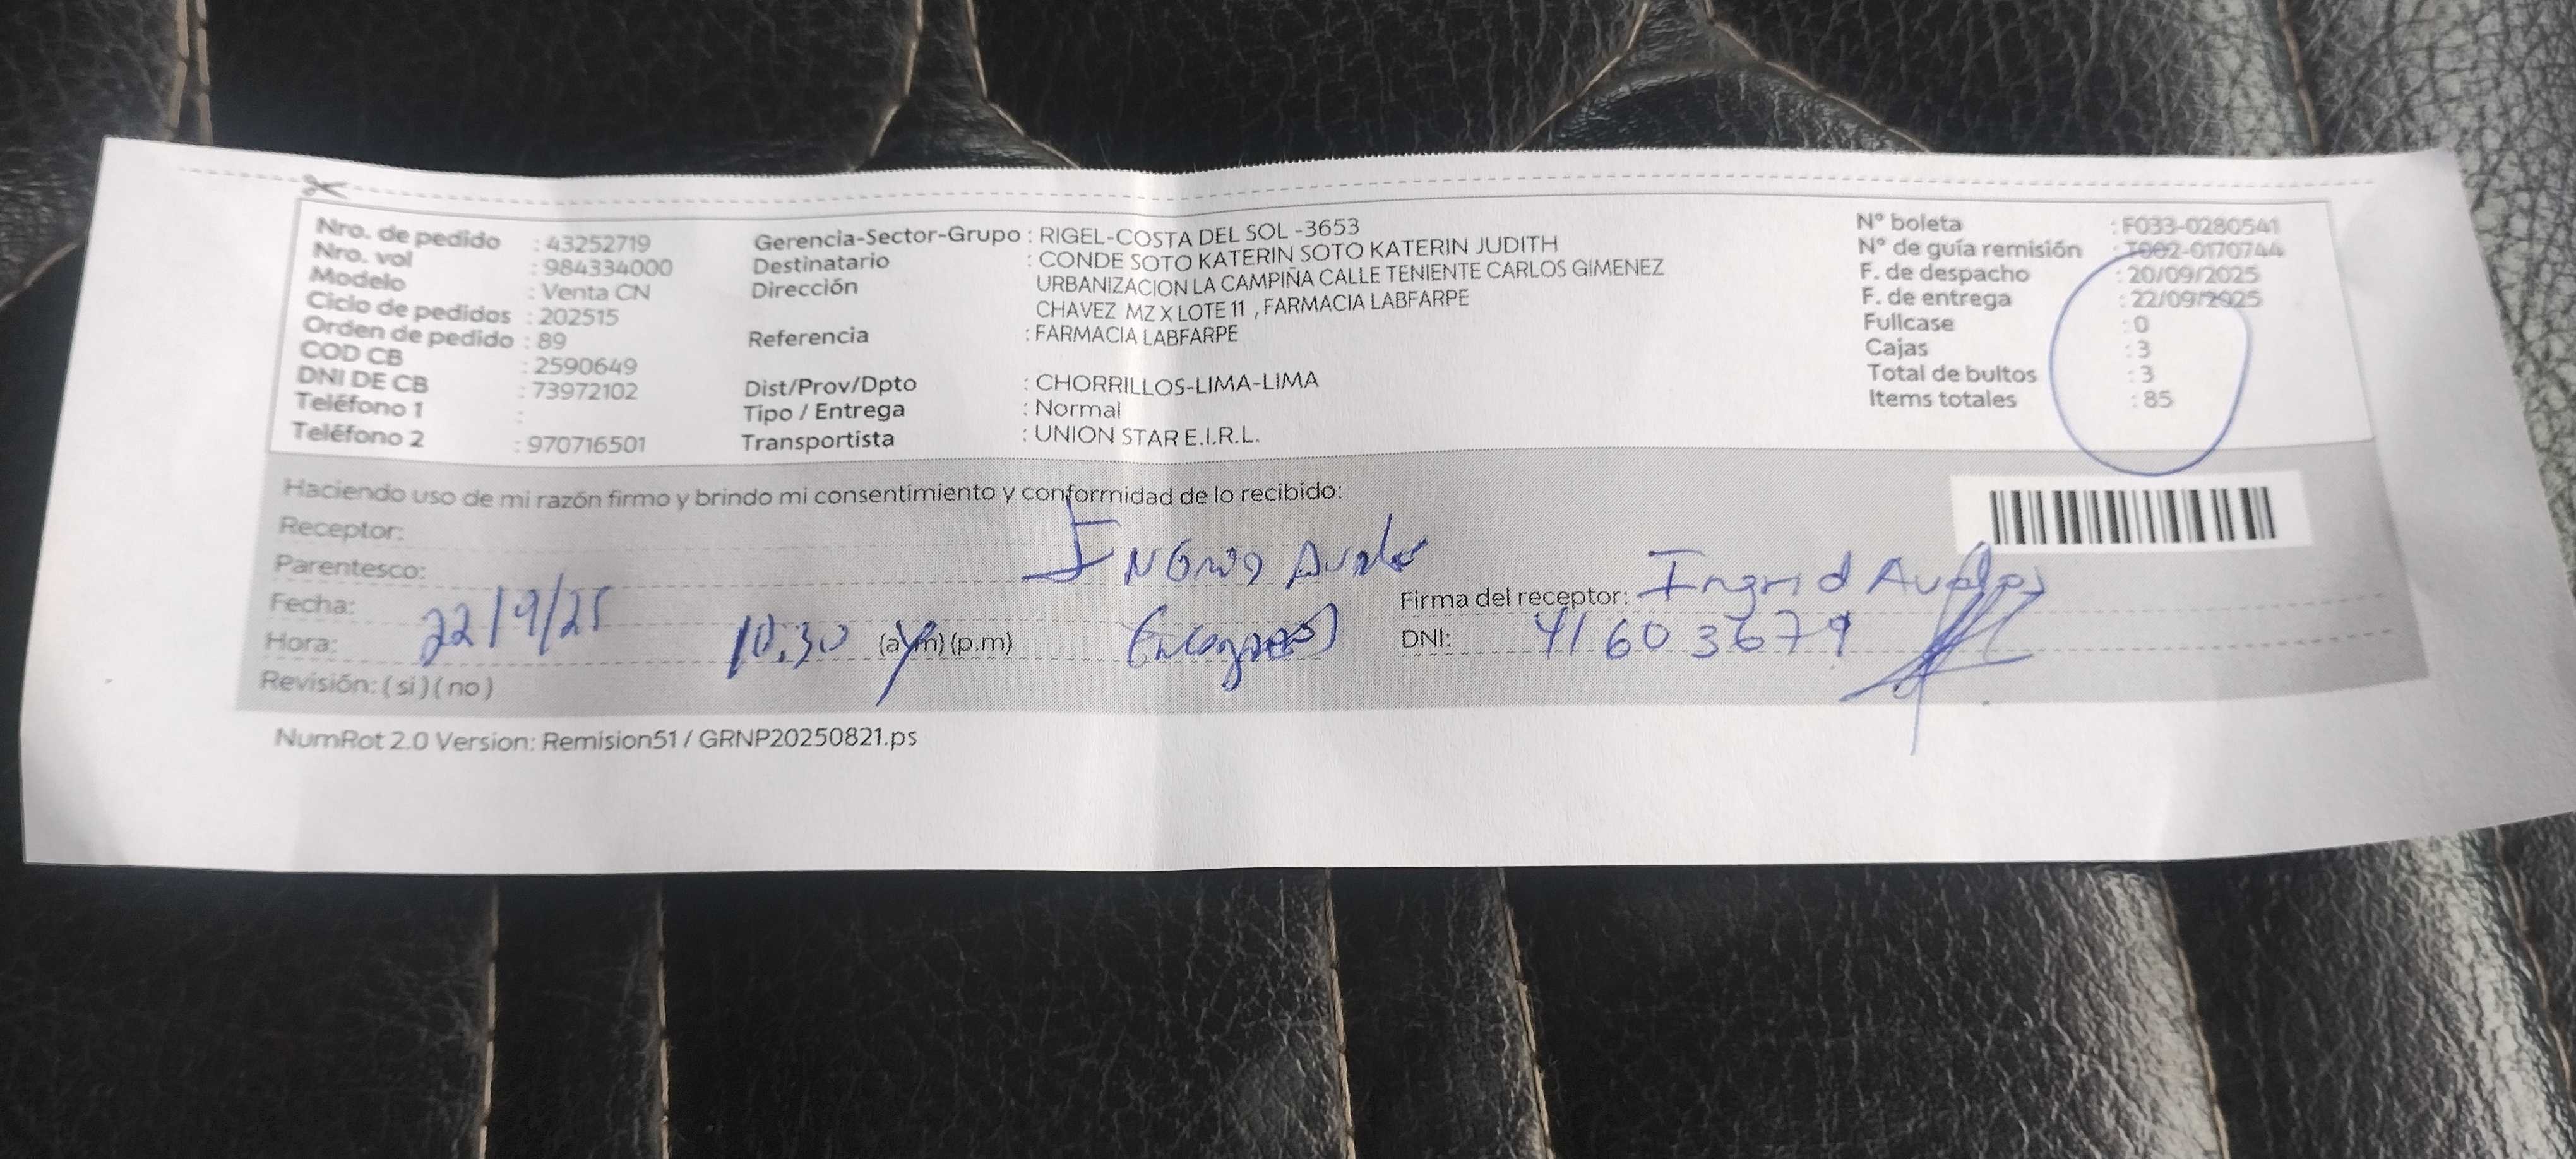 Nro. de pedido : 43252719
Nro. vol : 984334000
Modelo : Venta CN
Ciclo de pedidos : 202515
Orden de pedido : 89
COD CB : 2590649
DNI DE CB : 73972102
Teléfono 1 :
Teléfono 2 : 970716501
Gerencia-Sector-Grupo : RIGEL-COSTA DEL SOL -3653
Destinatario : CONDE SOTO KATERIN SOTO KATERIN JUDITH
Dirección URBANIZACION LA CAMPIÑA CALLE TENIENTE CARLOS GIMENEZ
CHAVEZ MZ X LOTE 11 , FARMACIA LABFARPE
Referencia : FARMACIA LABFARPE
Dist/Prov/Dpto : CHORRILLOS-LIMA-LIMA
Tipo / Entrega : Normal
Transportista : UNION STAR E.I.R.L.
N° boleta : F033-0280541
N° de guía remisión : T002-0170744
F. de despacho : 20/09/2025
F. de entrega : 22/09/2025
Fullcase : 0
Cajas : 3
Total de bultos : 3
Items totales : 85
Haciendo uso de mi razón firmo y brindo mi consentimiento y conformidad de lo recibido:
Receptor: INGRID Avalos
Parentesco:
Fecha: 22/9/25
Hora: 10:30 (a.m) (p.m)
Revisión: ( si ) ( no )
Firma del receptor: Ingrid Avalos
DNI: 41603679
NumRot 2.0 Version: Remision51 / GRNP20250821.ps